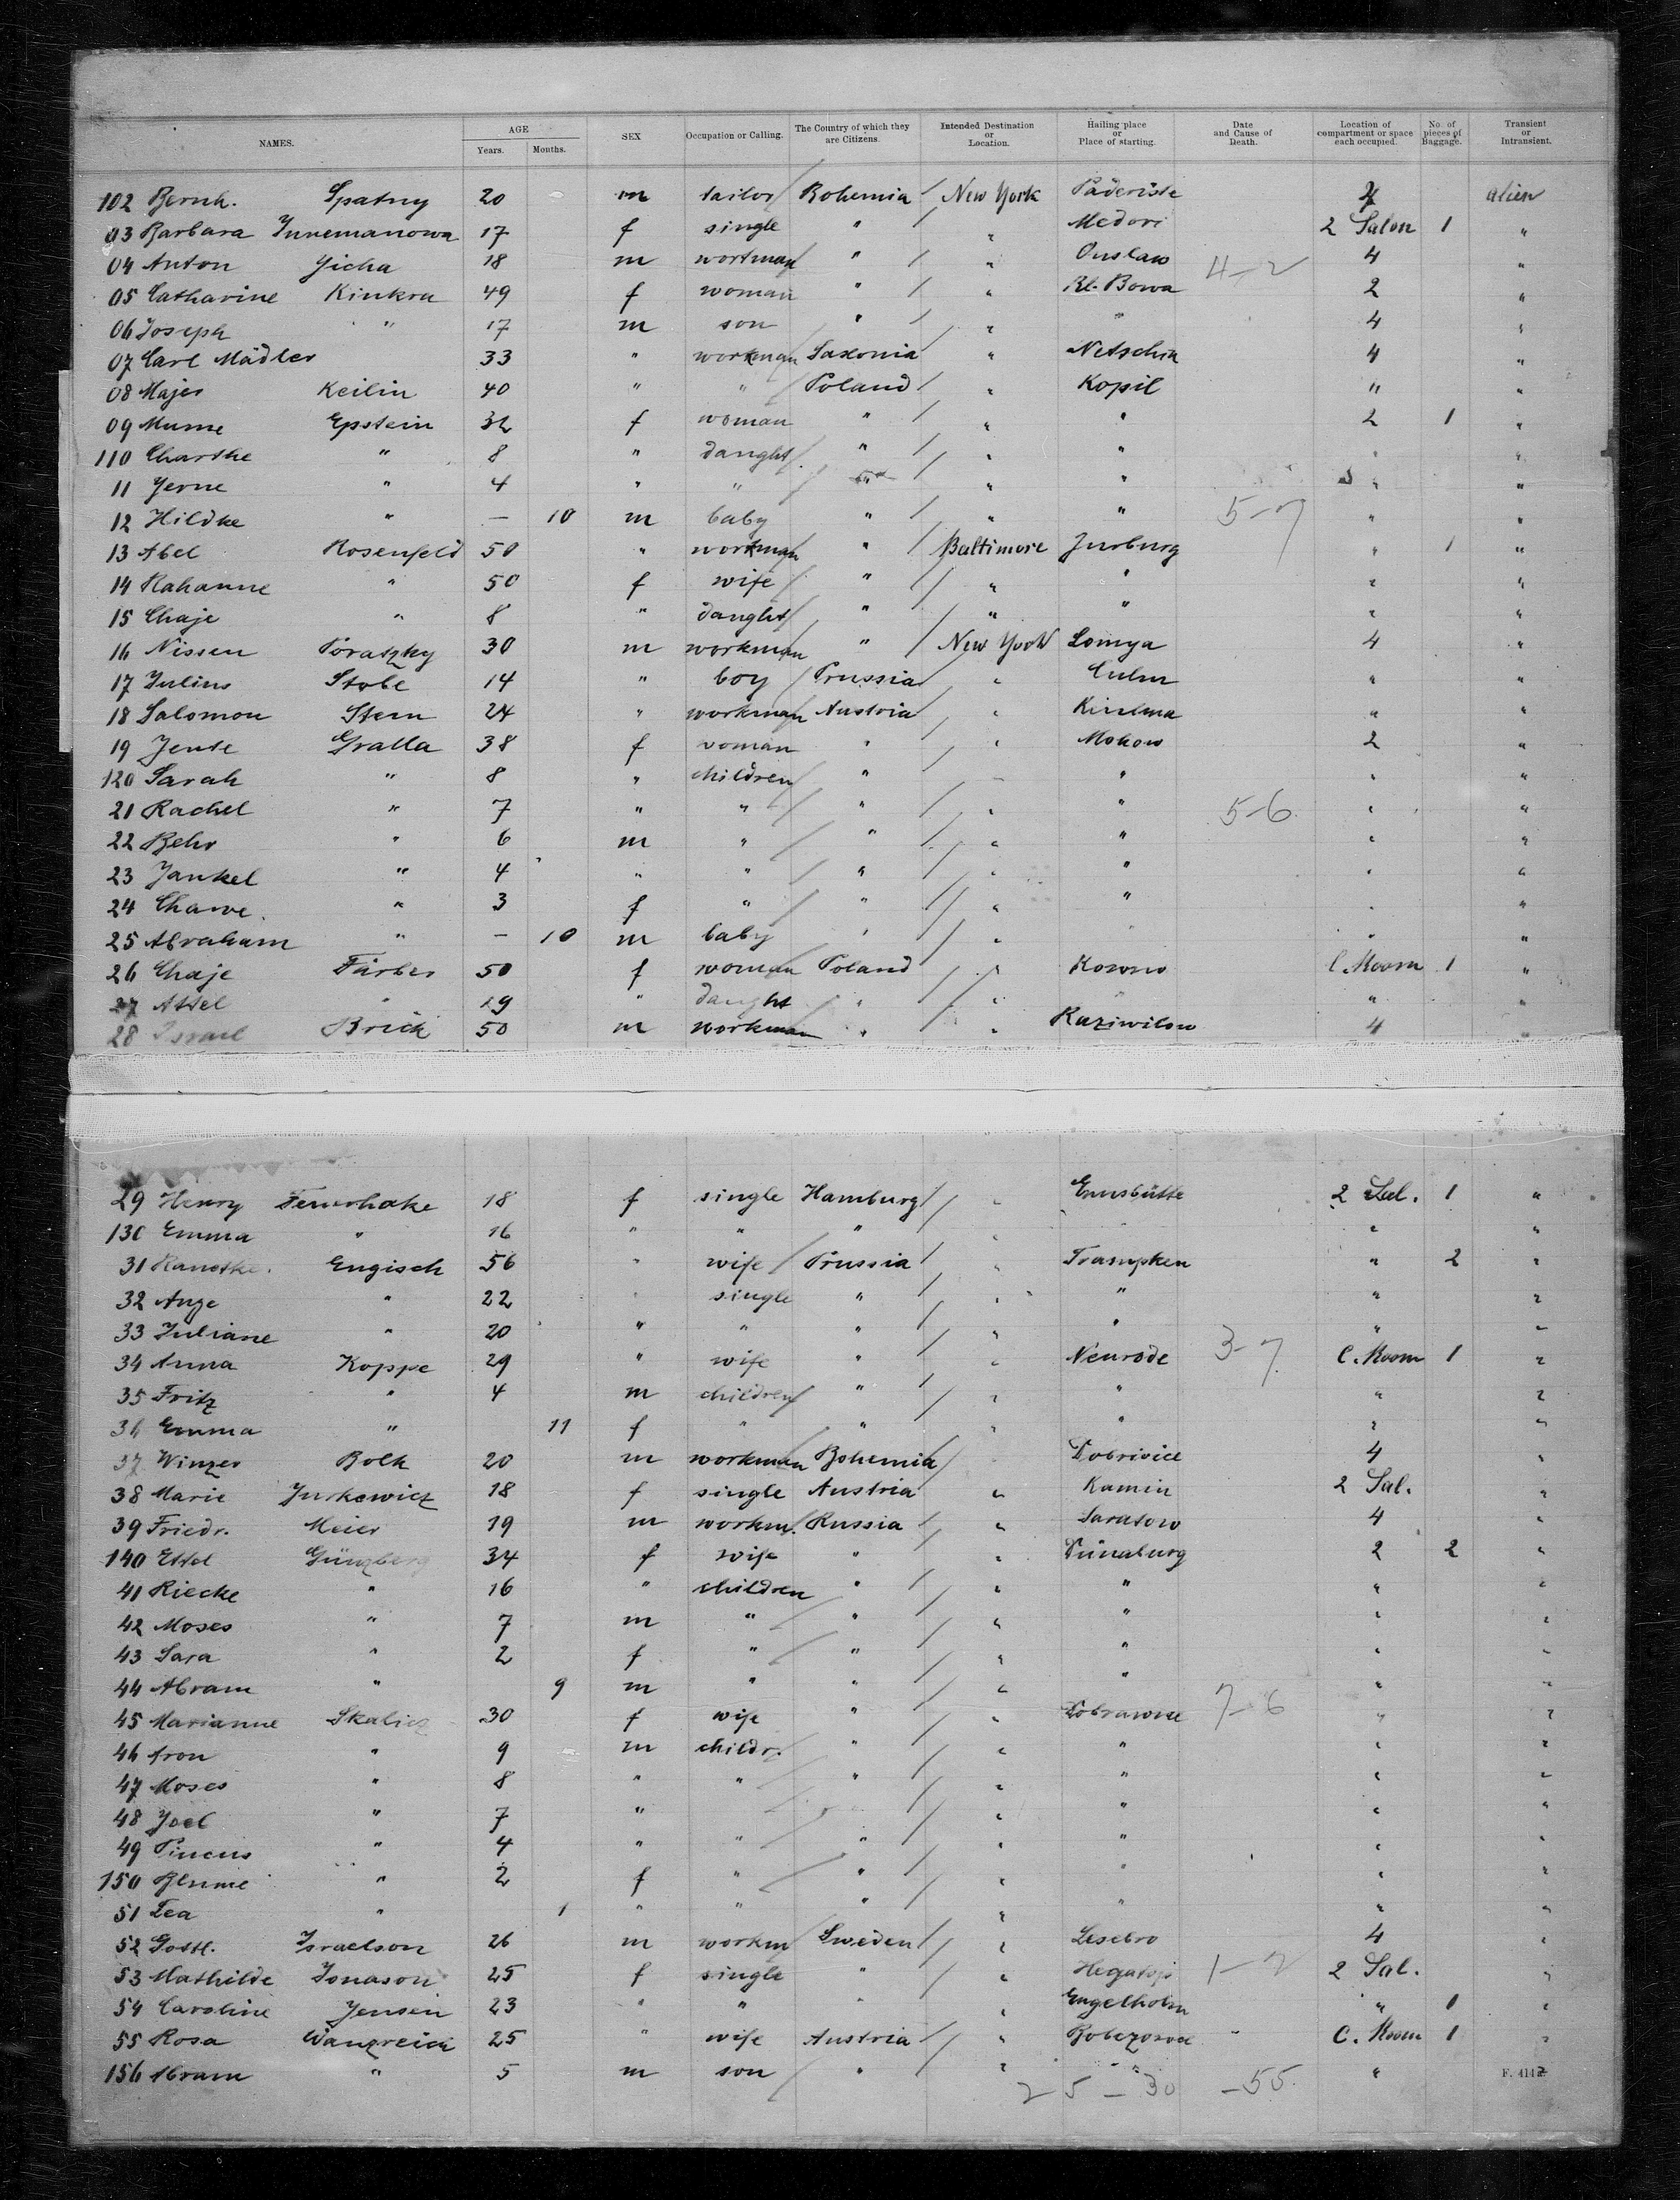 NAMES. AGE SEX Occupation or Calling. The Country of which they are Citizens. Intended Destination or Location. Hailing place or Place of starting. Date and Cause of Death. Location of compartment or space each occupied. No. of pieces of Baggage. Transient or Intransient.
Years. Months.
102 Bernh. Spatny 20 m tailor Bohemia New York 4 alien
03 Barbara 17 f single " " Medovi 2 Salon 1 "
04 Anton Jicha 18 m workman " " Onslaw 4 "
4-2
05 Catharine Kinkra 49 f woman " " Kl. Bowa 2 "
06 Joseph " 17 m son " " " 4 "
07 Carl Mädler 33 " workman Saxonia " Netschin 4 "
08 Majer Keilin 40 " " Poland " Kopil " "
09 Mume Epstein 32 f woman " " " 2 1 "
110 Charthe " 8 " daught. " " " " "
11 Jerne " 4 " " " " " " "
12 Hildke " — 10 m baby " " " " "
5-7
13 Abel Rosenfeld 50 " workman " Baltimore Jurburg " 1 "
14 Rahanne " 50 f wife " " " " "
15 Chaje " 8 " daught " " " " "
16 Nissen Poratzky 30 m workman " New York Lomza 4 "
17 Julius Stobe 14 " boy Prussia " Culm " "
18 Salomon Stern 24 " workman Austria " " "
19 Jente Gralla 38 f woman " " Mokow 2 "
120 Sarah " 8 " children " " " " "
21 Rachel " 7 " " " " " " "
5-6
22 Behr " 6 m " " " " " "
23 Jankel " 4 " " " " " " "
24 Chawe " 3 f " " " " " "
25 Abraham " — 10 m baby " " " "
26 Chaje Färber 50 f woman Poland " Kowno C. Room 1 "
27 Attel " 19 " daught " " " " "
28 Israel Brick 50 m workman " " Raziwilow 4 "
29 Henry Feuerhake 18 f single Hamburg " Eimsbütte 2 Sal. 1 "
130 Emma " 16 " " " " " " "
31 Engisch 56 " wife Prussia " Trampken " 2 "
32 Ange " 22 " single " " " " "
33 Juliane " 20 " " " " " " "
34 Anna Koppe 29 " wife " " Neurode C. Room 1 "
3-7
35 Fritz " 4 m children " " " " "
36 Emma " 11 f " " " " " "
37 Winzer Bolk 20 m workman Bohemia " Dobrivice 4 "
38 Marie Jurkewicz 18 f single Austria " Kamin 2 Sal. "
39 Friedr. Meier 19 m workm. Russia " Saratow 4 "
140 Ettel Günzberg 34 f wife " " Dünaburg 2 2 "
41 Riecke " 16 " children " " " " "
42 Moses " 7 m " " " " " "
43 Sara " 2 f " " " " " "
44 Abram " 9 m " " " " " "
45 Marianne Skalicz 30 f wife " " " "
7-6
46 Aron " 9 m childr. " " " " "
47 Moses " 8 " " " " " " "
48 Joel " 7 " " " " "
49 Pincus " 4 " " " " " " "
150 Blume " 2 f " " " " " "
51 Lea " 1 " " " " " " "
52 Gottl. Israelson 26 m workm Sweden " Lesebro 4 "
53 Mathilde Jonason 25 f single " " 2 Sal. "
1-2
54 Caroline Jensen 23 " " " " Engelholm " 1 "
55 Rosa Wanzreich 25 " wife Austria " C. Room 1 "
156 Abram " 5 m son " " " "
25 - 30 - 55.
F. 4142